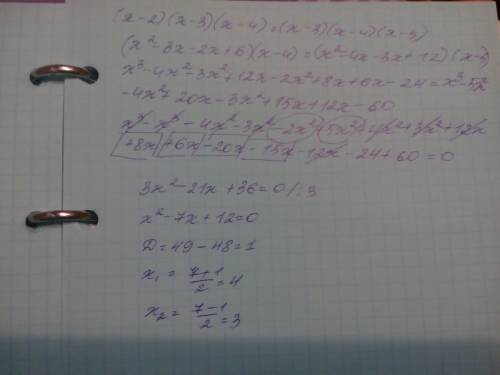 (x-2)(x-3)(x-4)=(x-3)(x-4)(x-5)
(x²-3x-2x+6)(x-4)=(x²-4x-3x+12)(x-5)
x³-4x²-3x²+12x-2x²+8x+6x-24=x³-5x²
-4x²+20x-3x²+15x+12x-60
x³-x³-4x²-3x²-2x²+5x²+4x²+3x²+12x
+8x+6x-20x-15x-12x-24+60=0
3x²-21x+36=0/:3
x²-7x+12=0
D=49-48=1
x₁=(7+1)/2=4
x₂=(7-1)/2=3